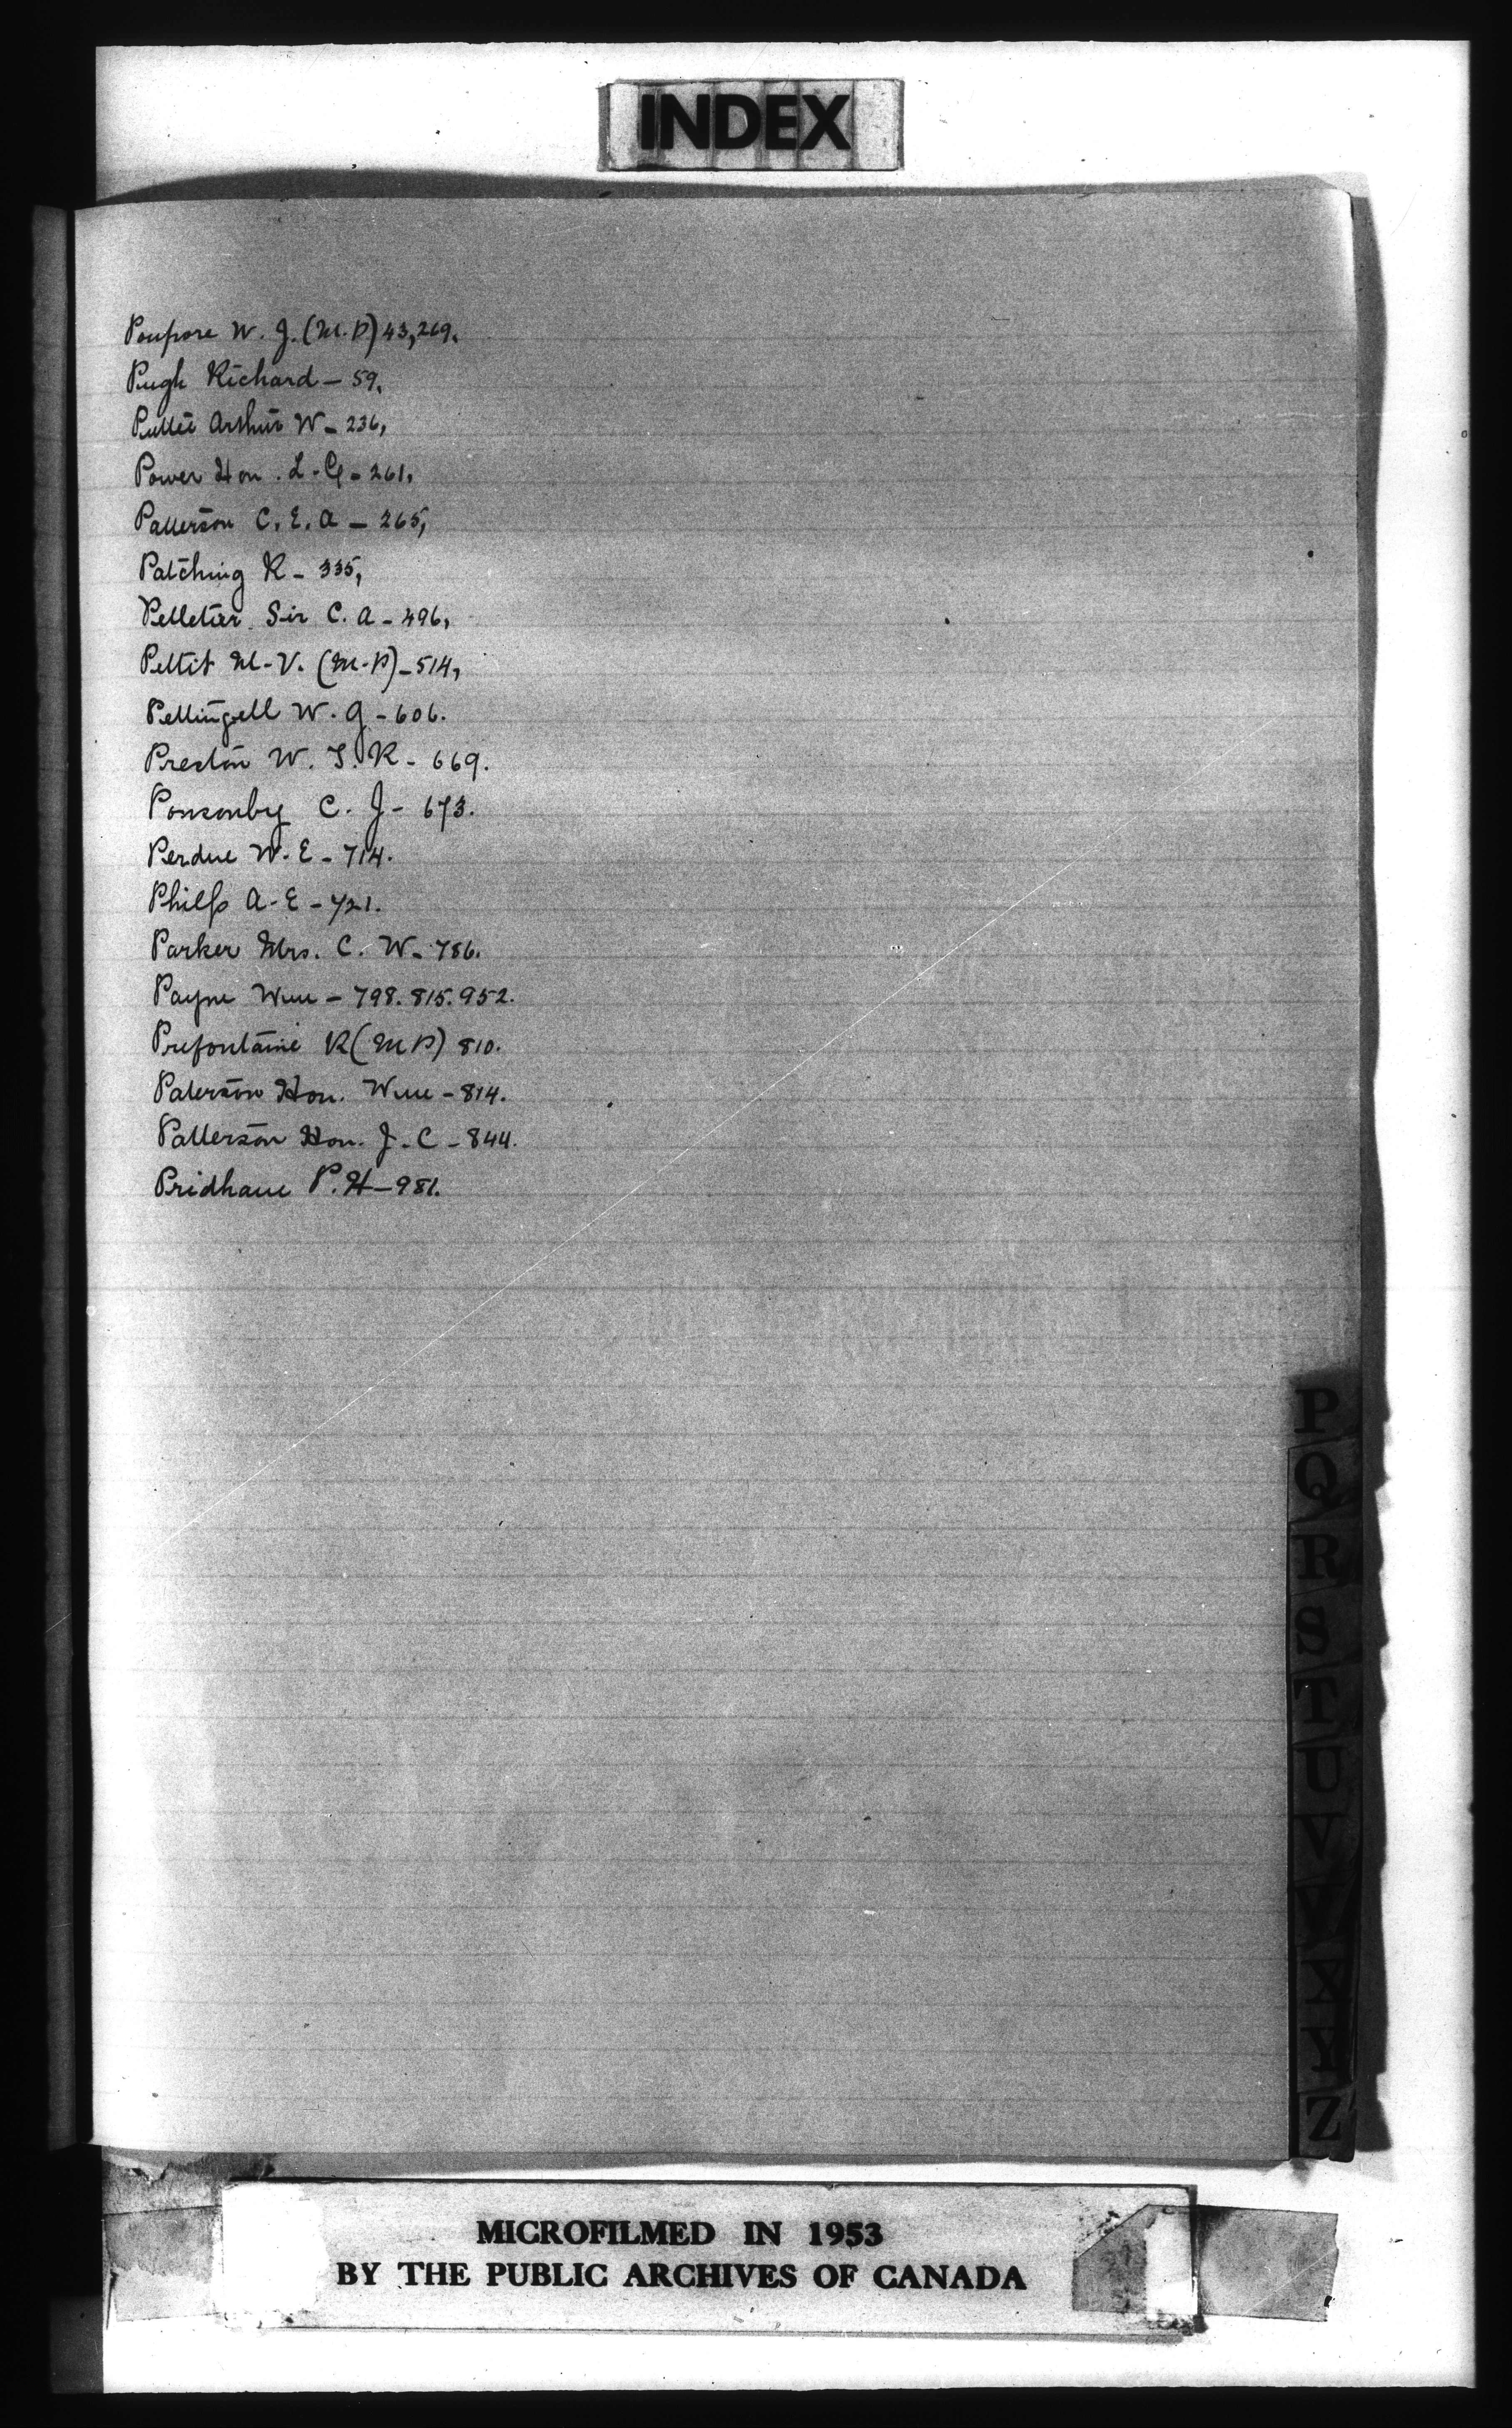 INDEX
Poupore W. J. (M.P) 43,269.
Pugh Richard – 59.
Puttee Arthur W – 236,
Power Hon. L. G – 261,
Patterson C. E. A – 265,
Patching R – 335,
Pelletier Sir C. A – 496,
Pettit M. V. (M.P) – 514,
Pettingell W. G – 606.
Preston W. T. R – 669.
Ponsonby C. J – 673.
Perdue W. E – 714.
Philp A. E – 721.
Parker Mrs. C. W – 786.
Payne Wm – 798. 815. 952.
Prefontaine R (MP) 810.
Paterson Hon. Wm – 814.
Patterson Hon. J. C – 844.
Pridham P. H – 981.
P
Q
R
S
T
U
V
W
X
Y
Z
MICROFILMED IN 1953
BY THE PUBLIC ARCHIVES OF CANADA